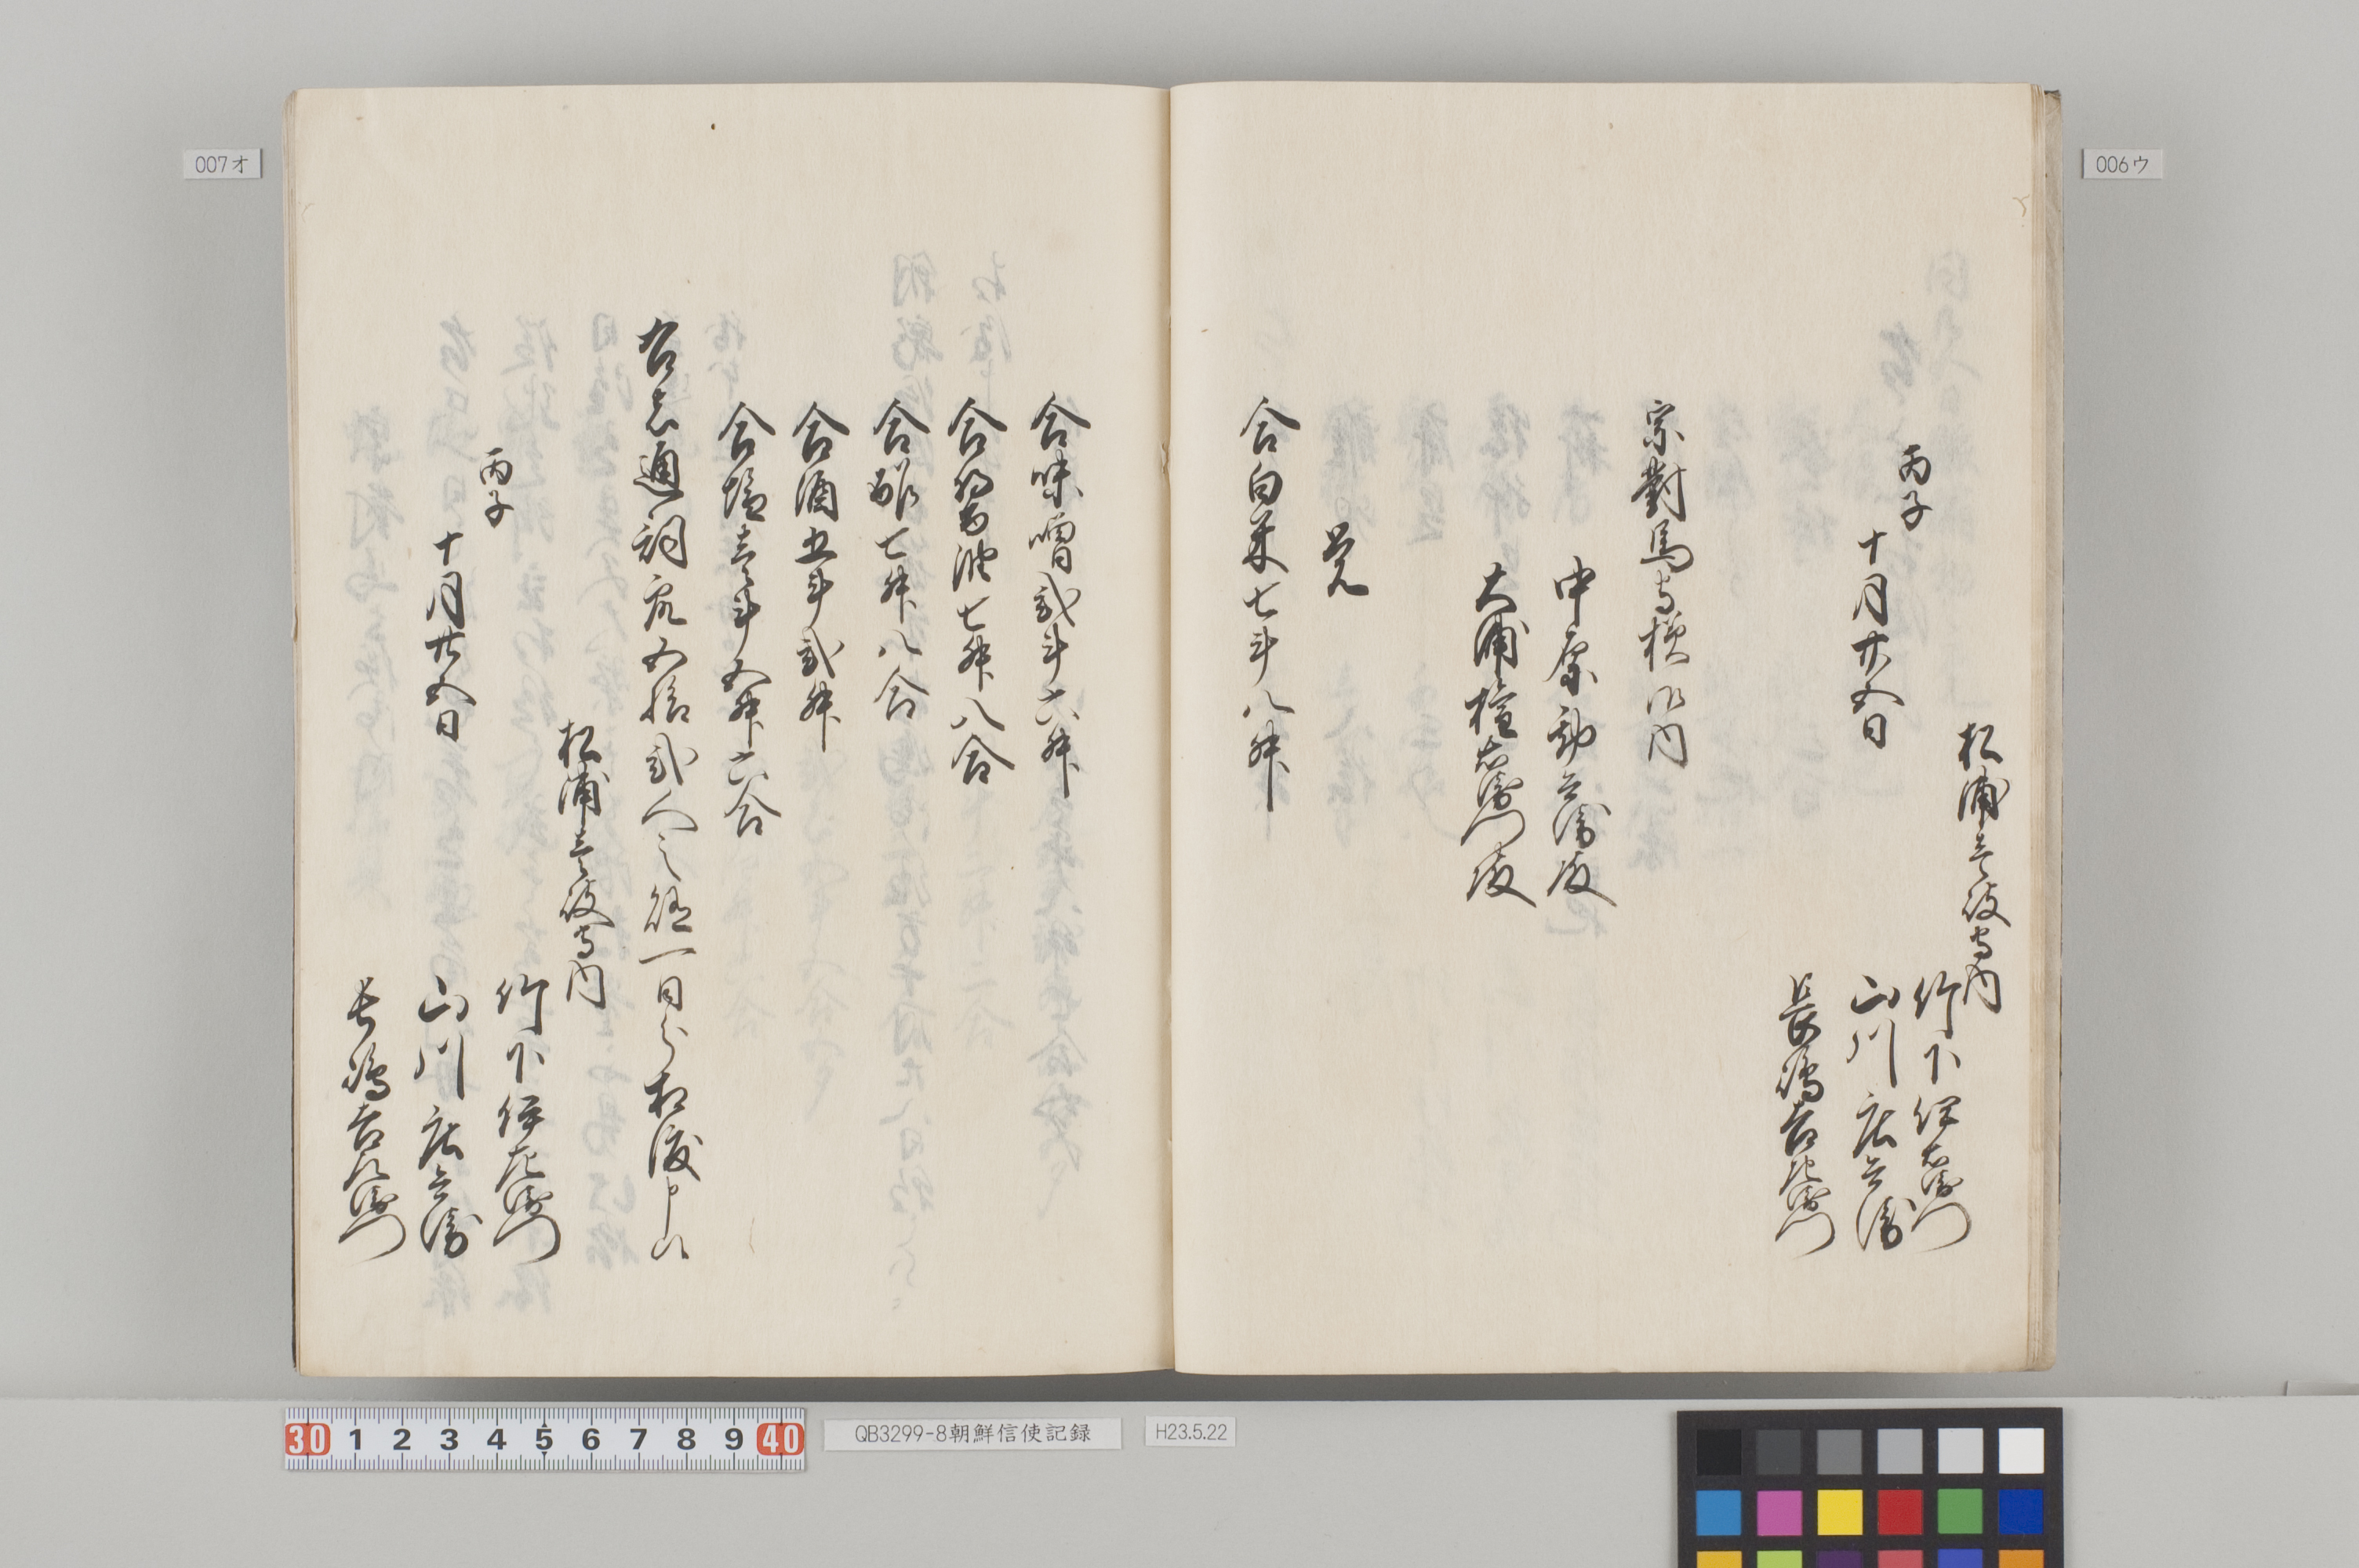 006ウ
松浦壱岐守内
竹下伊右衛門
山川庄兵衛
長嶋吉左衛門
丙子
十月廿五日
宗對馬守様御内
中原勘兵衛殿
大浦権右衛門殿
覚
合白米七斗八舛
007オ
合味噌弐斗六舛
合醤油七舛八合
合酢七舛八合
合酒五斗弐舛
合塩壱斗五舛六合
右者通詞衆五拾弐人之組一日分相渡申候
松浦壱岐守内
竹下伊左衛門
山川庄兵衛
長嶋吉左衛門
丙子
十月廿五日
30 1 2 3 4 5 6 7 8 9 40
QB3299-8朝鮮信使記録
H23.5.22